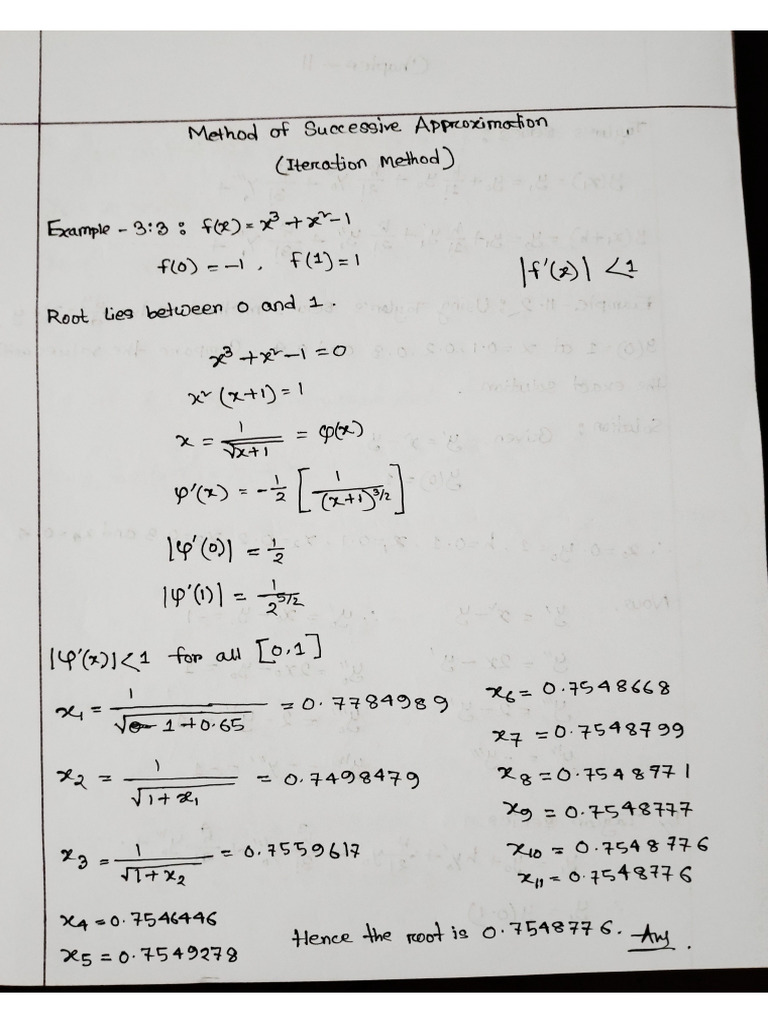 Method of Successive Approximation
(Iteration Method)
Example - 3:3 : f(x) = x³ + x² - 1
f(0) = -1 , f(1) = 1
|f'(x)| < 1
Root lies between 0 and 1.
x³ + x² - 1 = 0
x² (x+1) = 1
x = 1/√(x+1) = φ(x)
φ'(x) = -1/2 [1/(x+1)^(3/2)]
|φ'(0)| = 1/2
|φ'(1)| = 1/2^(5/2)
|φ'(x)| < 1 for all [0,1]
x₁ = 1/√(1+0.65) = 0.7784989
x₂ = 1/√(1+x₁) = 0.7498479
x₃ = 1/√(1+x₂) = 0.7559617
x₄ = 0.7546446
x₅ = 0.7549278
x₆ = 0.7548668
x₇ = 0.7548799
x₈ = 0.7548771
x₉ = 0.7548777
x₁₀ = 0.7548776
x₁₁ = 0.7548776
Hence the root is 0.7548776. Ans.